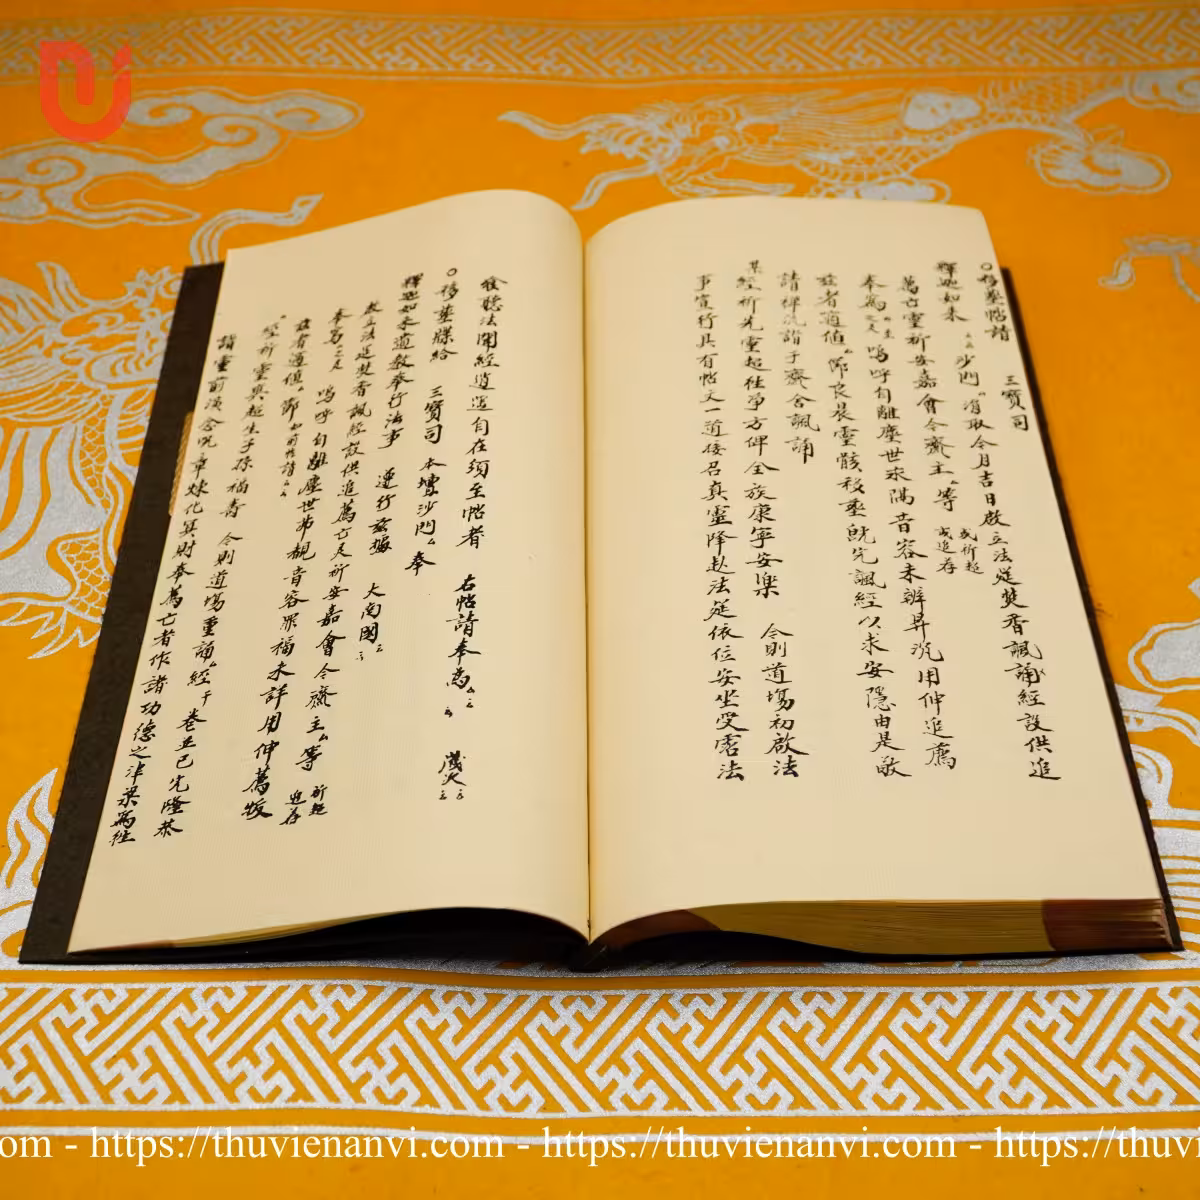 ○移塟帖請 三寶司
釋迦如来 沙門 涓取今月吉日啟立法筵焚香諷誦經設供追
薦亡靈祈安嘉會令齋主等 或祈超 或追荐
奉為 嗚呼自離塵世永隔音容未辨昇沉用伸追薦
茲者適值 節良辰靈骸移塟既先諷經以求安隱由是敬
請禪流詣于齋舍諷誦
某經祈先靈超往爭方俾全族康寧安樂 今則道場初啟法
事宣行具有帖文一道接召真靈降赴法筵依位安坐受霑法
食聽法聞經逍遥自在須至帖者 右帖請奉為 歲次
○移塟牒給 三寶司 本壇沙門 奉
釋迦如来遺教奉行法事 遵行茲據 大南國
啟立法筵焚香諷經設供追薦亡足祈安嘉會令齋主等 祈超 追荐
奉為 嗚呼自離塵世弗覩音容罪福未詳用伸薦拔
茲者適值 節 如前帖請
經祈靈爽超生子孫福壽 今則道場重誦 經 卷並已完隆恭
請靈前演念咒章煉化冥財奉為亡者作諸功德之津梁為往
https://thuvienanvi.com - https://thuvienanvi.com